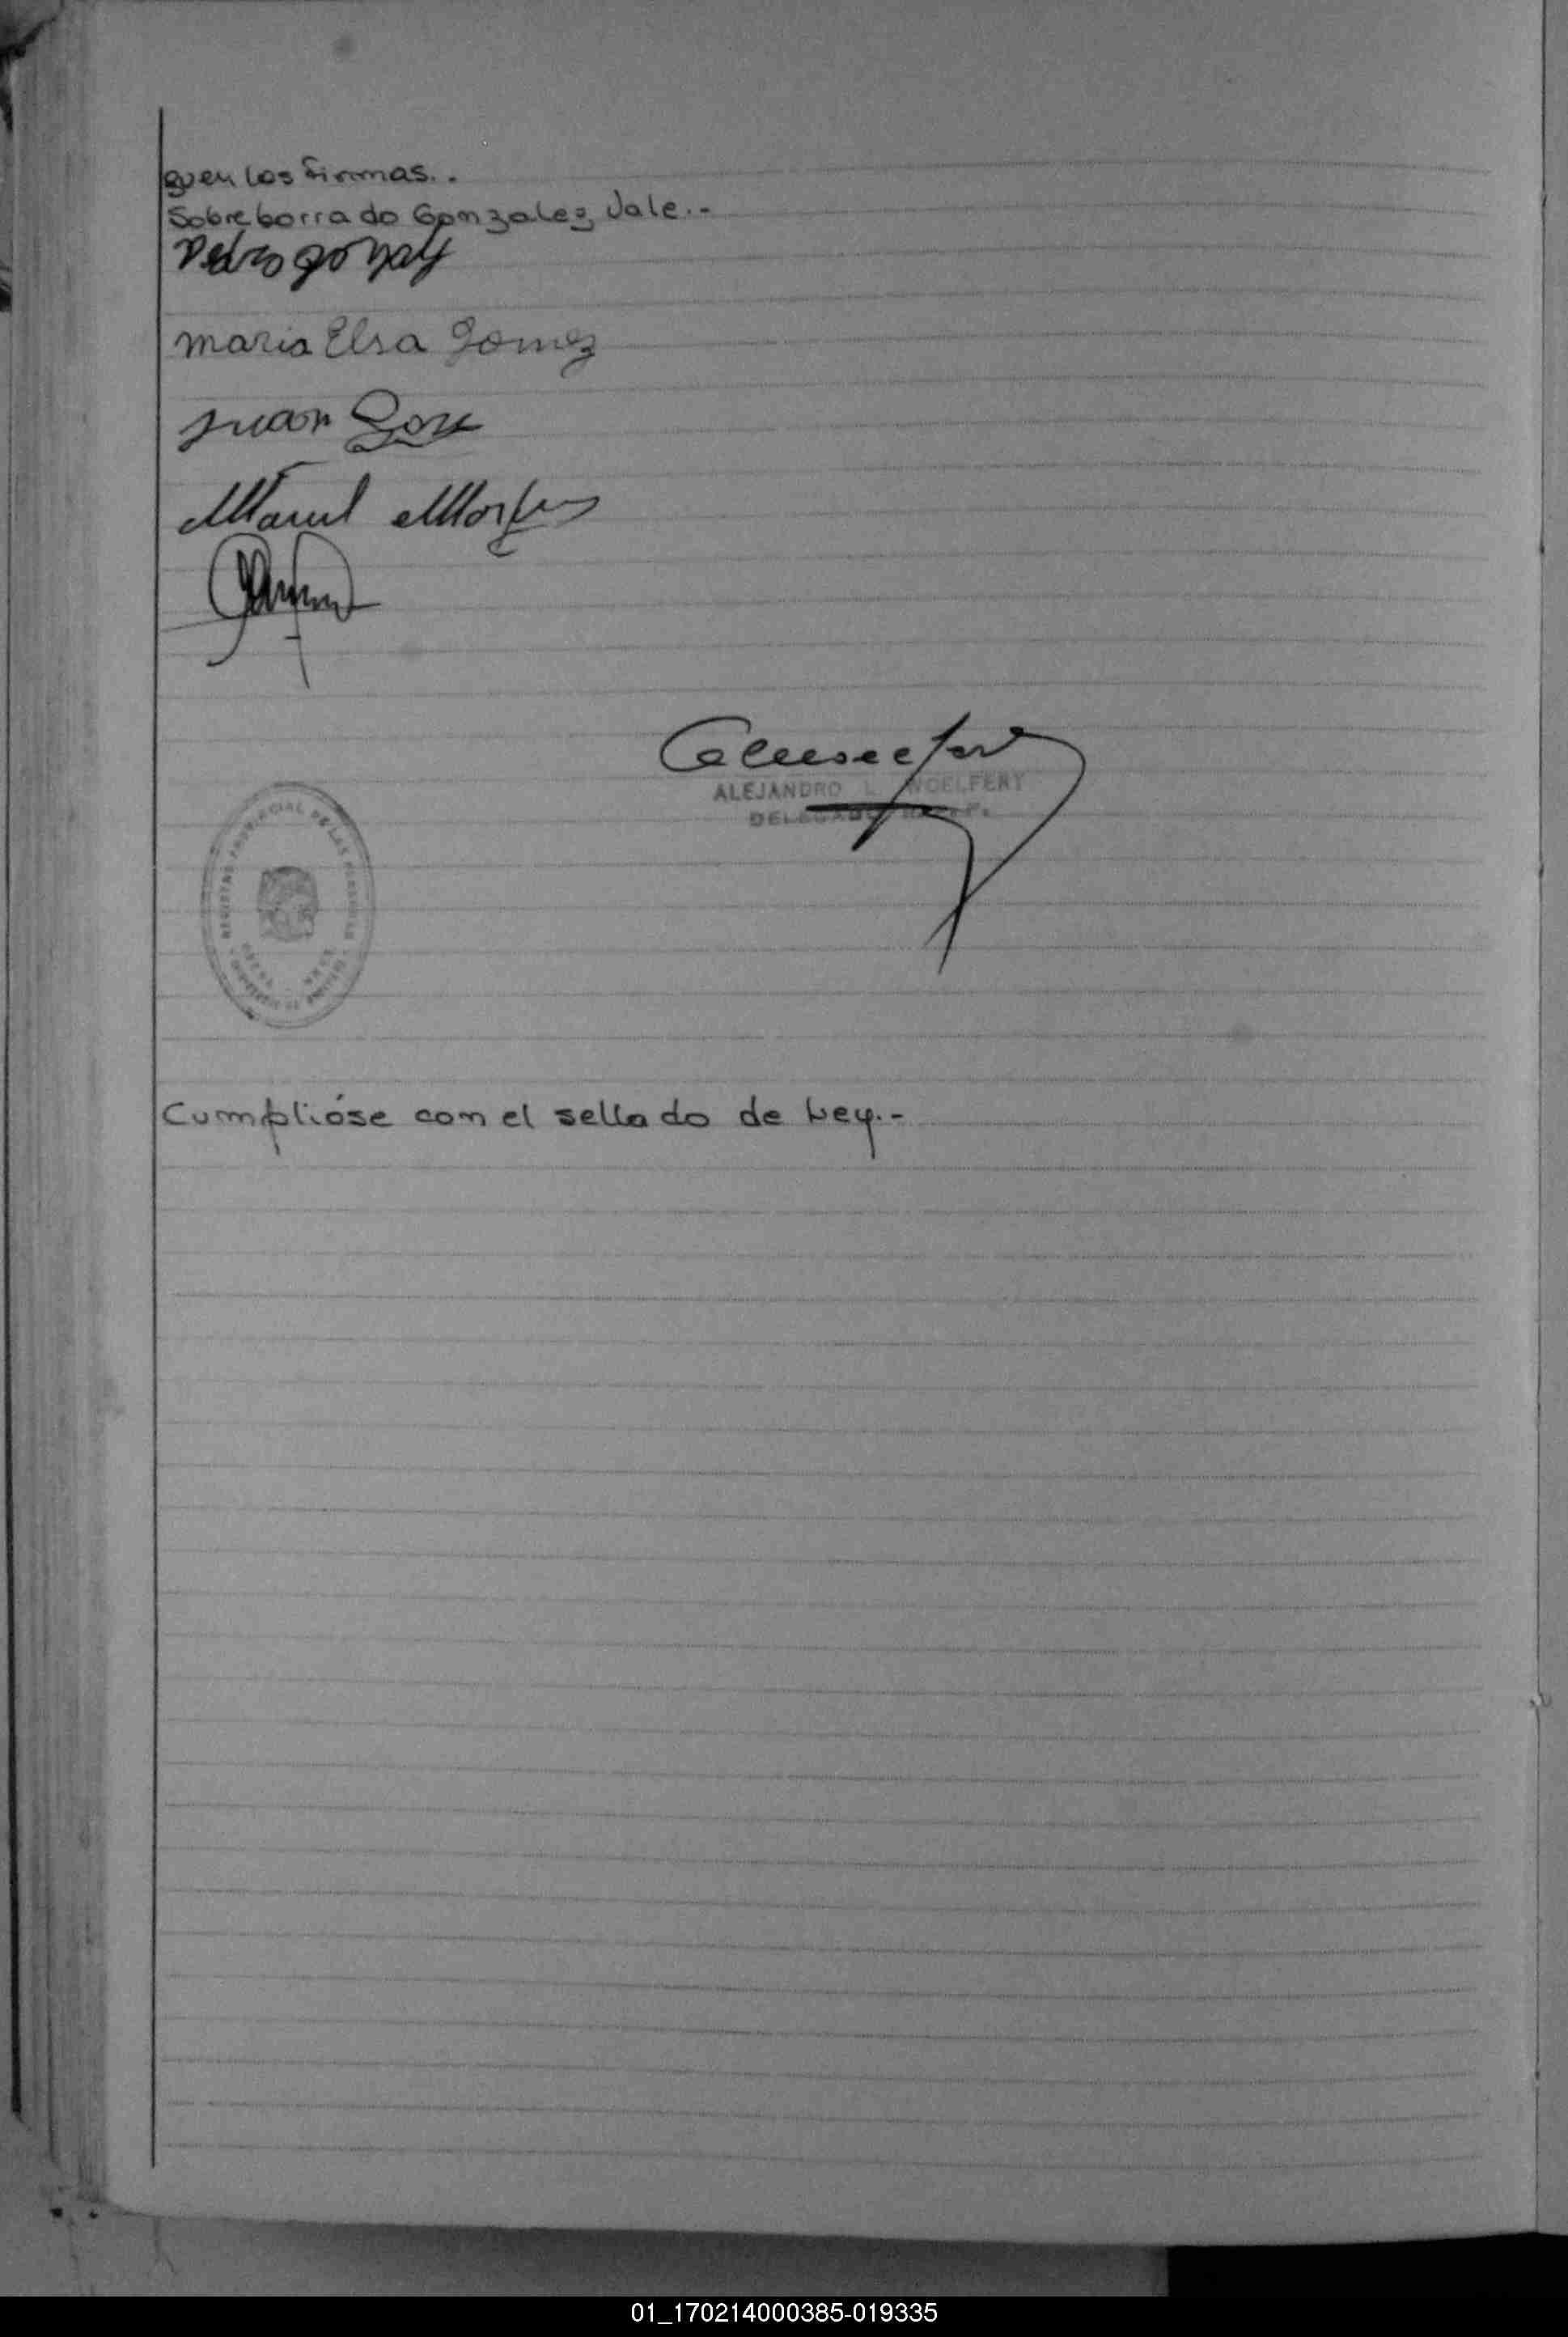 guen las firmas..
Sobre borrado Gonzalez, Vale.-
Pedro
maria Elsa Gomez
Juan
Manuel
ALEJANDRO L. WOELFERT
DELEGADO
REGISTRO PROVINCIAL DE LAS PERSONAS
Cumplióse con el sellado de Ley.-
01_170214000385-019335